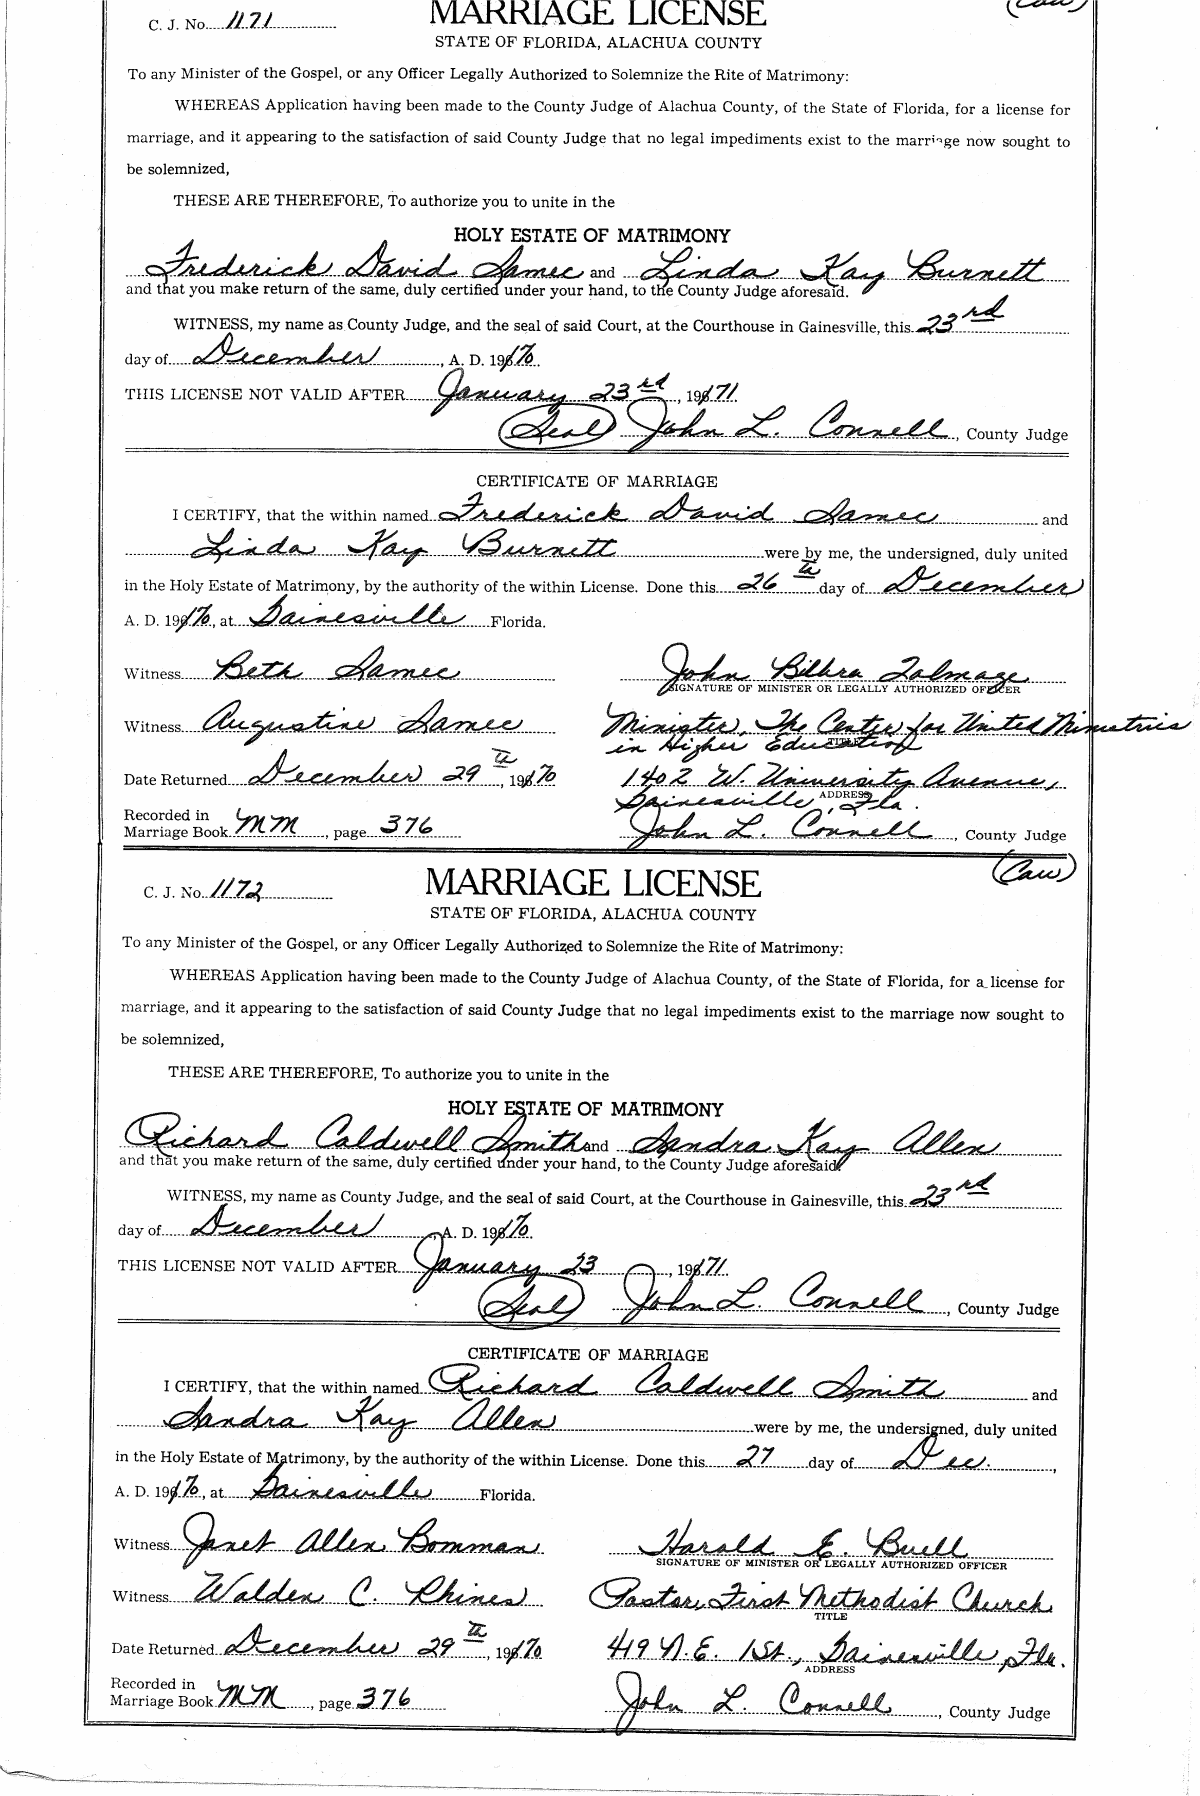 C. J. No. 1171
MARRIAGE LICENSE
(Caw)
STATE OF FLORIDA, ALACHUA COUNTY
To any Minister of the Gospel, or any Officer Legally Authorized to Solemnize the Rite of Matrimony:
WHEREAS Application having been made to the County Judge of Alachua County, of the State of Florida, for a license for
marriage, and it appearing to the satisfaction of said County Judge that no legal impediments exist to the marriage now sought to
be solemnized,
THESE ARE THEREFORE, To authorize you to unite in the
HOLY ESTATE OF MATRIMONY
Frederick David Samec and Linda Kay Burnett
and that you make return of the same, duly certified under your hand, to the County Judge aforesaid.
WITNESS, my name as County Judge, and the seal of said Court, at the Courthouse in Gainesville, this 23rd
day of December, A. D. 1970.
THIS LICENSE NOT VALID AFTER January 23rd, 1971.
(Seal) John L. Connell, County Judge
CERTIFICATE OF MARRIAGE
I CERTIFY, that the within named Frederick David Samec and
Linda Kay Burnett were by me, the undersigned, duly united
in the Holy Estate of Matrimony, by the authority of the within License. Done this 26th day of December
A. D. 1970, at Gainesville Florida.
Witness Beth Samec John Talmage
SIGNATURE OF MINISTER OR LEGALLY AUTHORIZED OFFICER
Witness Augustine Samec Minister, The Center for United Ministries
in Higher Education
TITLE
Date Returned December 29th, 1970 1402 W. University Avenue,
ADDRESS
Gainesville, Fla.
Recorded in
Marriage Book MM, page 376 John L. Connell, County Judge
(Caw)
C. J. No. 1172
MARRIAGE LICENSE
STATE OF FLORIDA, ALACHUA COUNTY
To any Minister of the Gospel, or any Officer Legally Authorized to Solemnize the Rite of Matrimony:
WHEREAS Application having been made to the County Judge of Alachua County, of the State of Florida, for a license for
marriage, and it appearing to the satisfaction of said County Judge that no legal impediments exist to the marriage now sought to
be solemnized,
THESE ARE THEREFORE, To authorize you to unite in the
HOLY ESTATE OF MATRIMONY
Richard Caldwell Smith and Sandra Kay Allen
and that you make return of the same, duly certified under your hand, to the County Judge aforesaid
WITNESS, my name as County Judge, and the seal of said Court, at the Courthouse in Gainesville, this 23rd
day of December, A. D. 1970.
THIS LICENSE NOT VALID AFTER January 23, 1971.
(Seal) John L. Connell, County Judge
CERTIFICATE OF MARRIAGE
I CERTIFY, that the within named Richard Caldwell Smith and
Sandra Kay Allen were by me, the undersigned, duly united
in the Holy Estate of Matrimony, by the authority of the within License. Done this 27 day of Dec.,
A. D. 1970, at Gainesville Florida.
Witness Janet Allen Bomman Harold E. Buell
SIGNATURE OF MINISTER OR LEGALLY AUTHORIZED OFFICER
Witness Walden C. Rhines Pastor, First Methodist Church
TITLE
Date Returned December 29th, 1970 419 N.E. 1st., Gainesville, Fla.
ADDRESS
Recorded in
Marriage Book MM, page 376 John L. Connell, County Judge